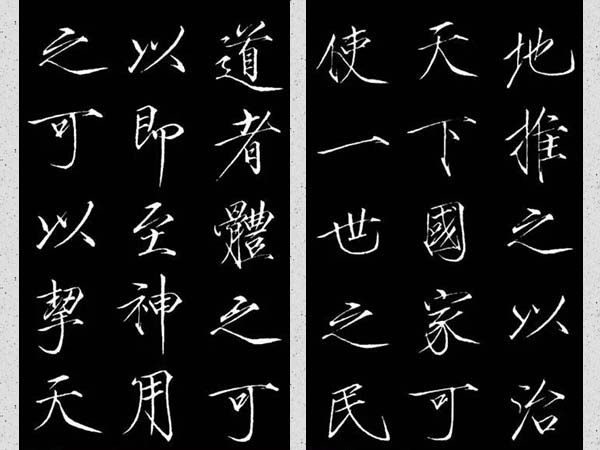 道者體之可
以即至神用
之可以挈天
地推之以治
天下國家可
使一世之民